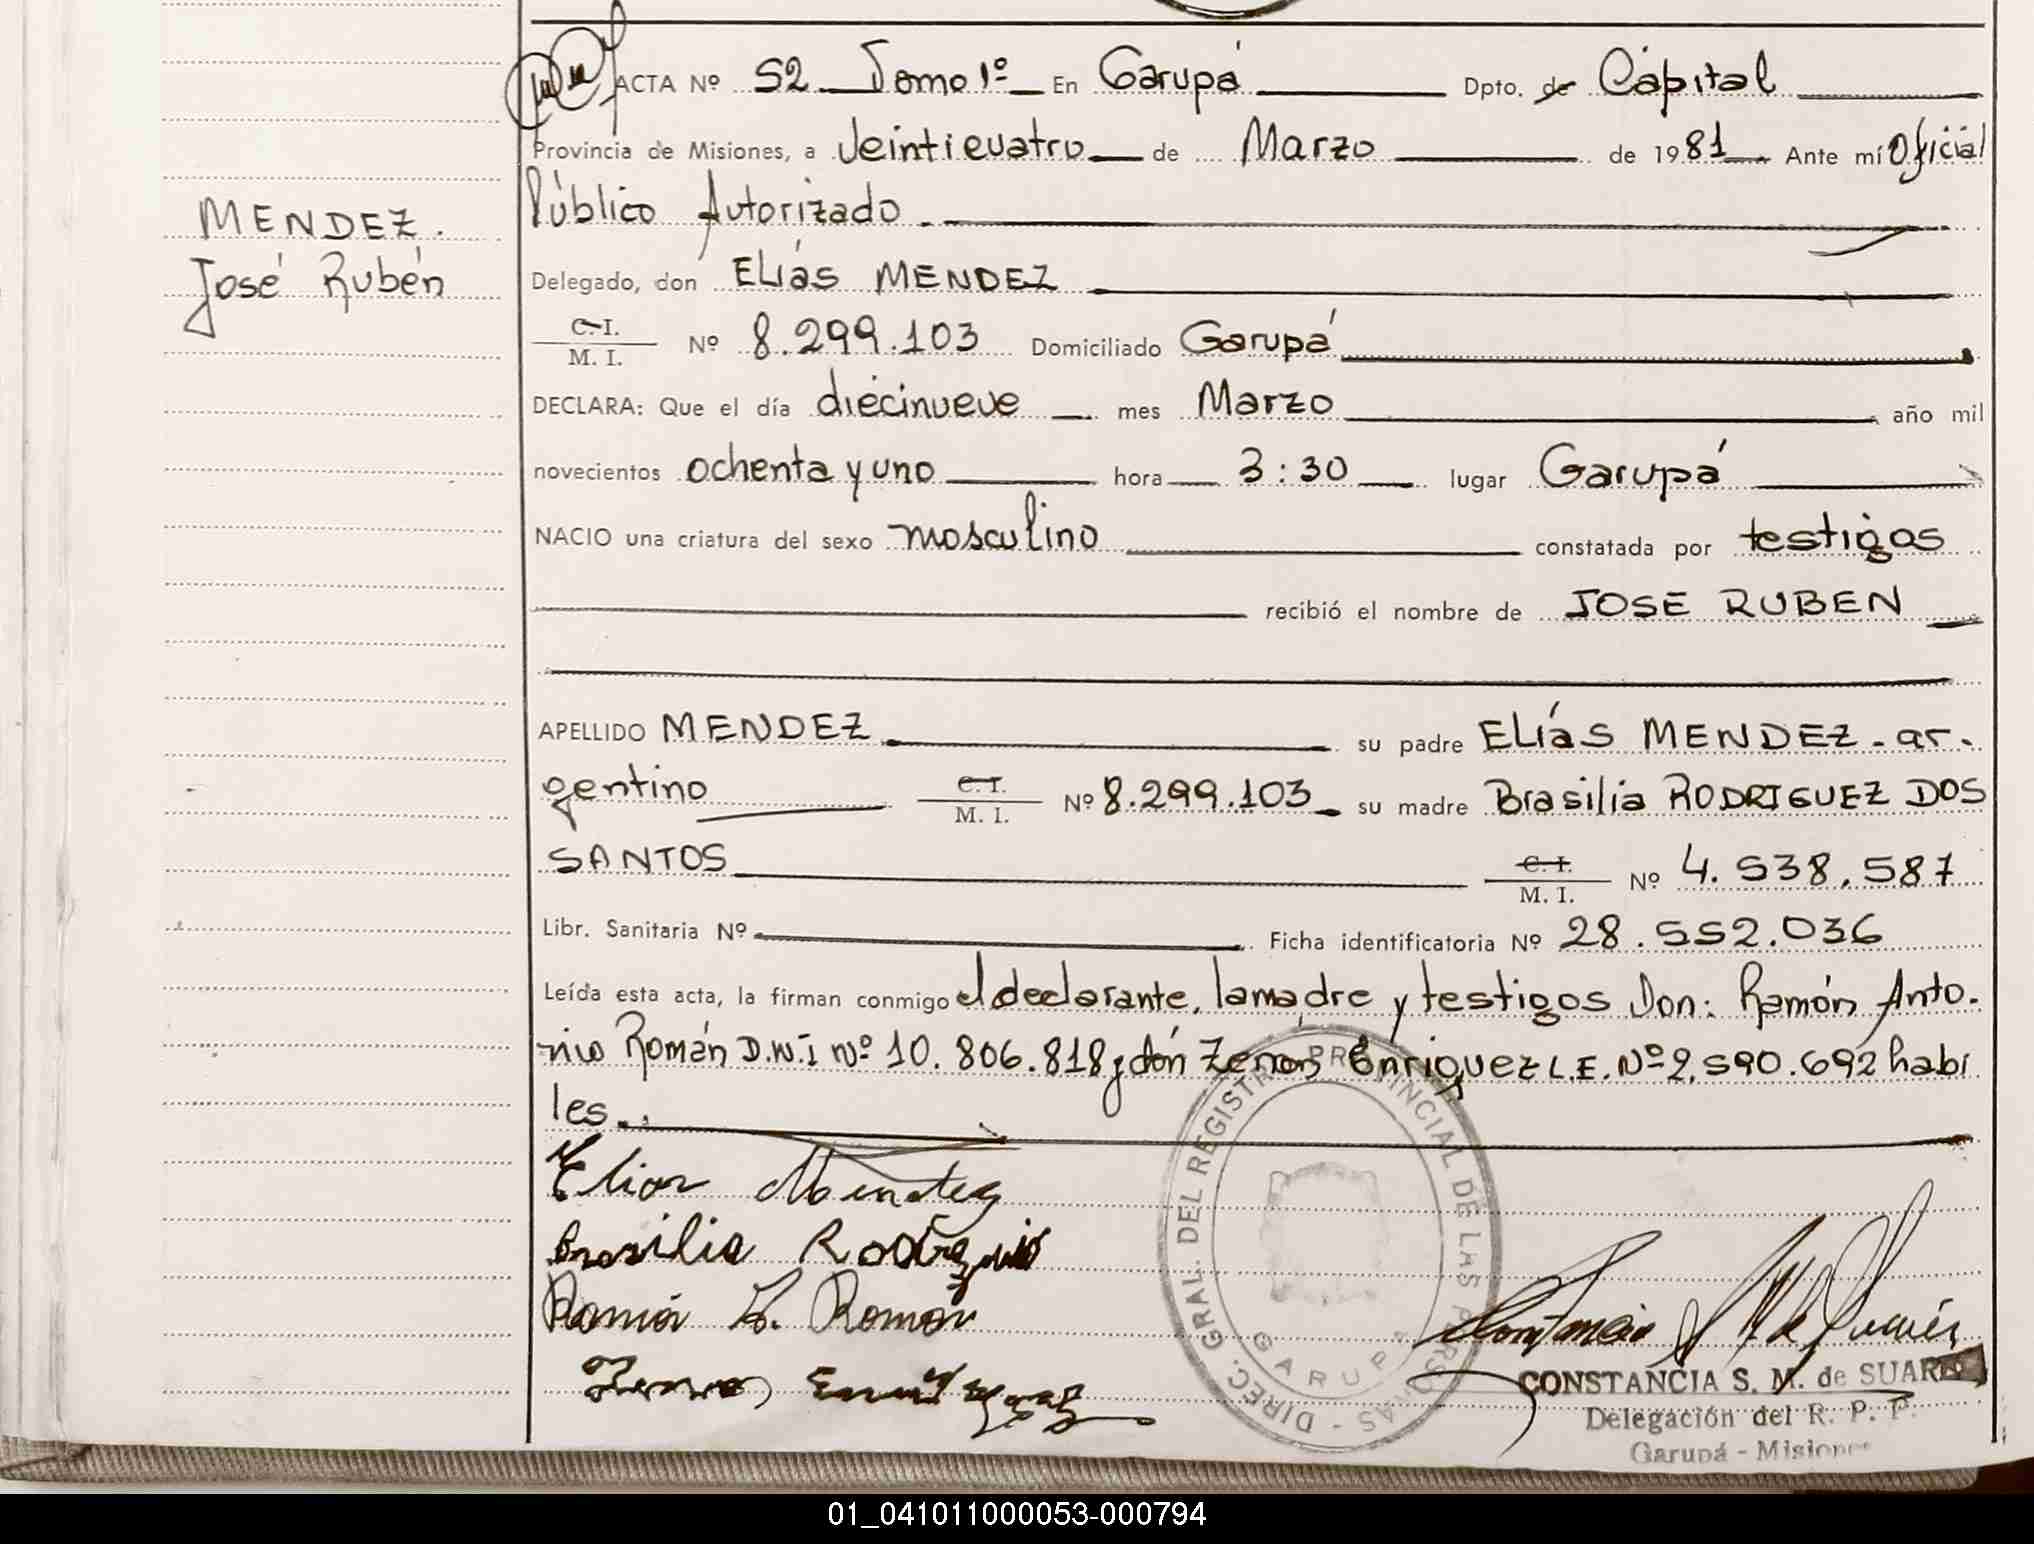 ACTA Nº 52 Tomo 1º En Garupá Dpto. de Capital
Provincia de Misiones, a Veinticuatro de Marzo de 1981 Ante mí Oficial
Público Autorizado.
MENDEZ.
José Rubén
Delegado, don ELíAS MENDEZ
C.I. M. I. Nº 8.299.103 Domiciliado Garupá
DECLARA: Que el día diecinueve mes Marzo año mil
novecientos ochenta y uno hora 3:30 lugar Garupá
NACIO una criatura del sexo masculino constatada por testigos
recibió el nombre de JOSE RUBEN
APELLIDO MENDEZ su padre ELíAS MENDEZ - ar-
gentino C.I. M. I. Nº 8.299.103 su madre Brasilia RODRIGUEZ DOS
SANTOS C.I. M. I. Nº 4.538.587
Libr. Sanitaria Nº Ficha identificatoria Nº 28.552.036
Leída esta acta, la firman conmigo el declarante, la madre y testigos Don: Ramón Anto-
nio Román D.N.I Nº 10.806.818 y dón Zenón Enriquez L.E. Nº 2.590.692 habi
les..
Elias Mendez
Brasilia Rodriguez
Ramón A. Román
Zenon Enriquez
DIREC. GRAL. DEL REGISTRO PROVINCIAL DE LAS PERSONAS -
GARUPA
CONSTANCIA S. M. de SUAREZ
Delegación del R. P. P.
Garupá - Misiones
01_041011000053-000794